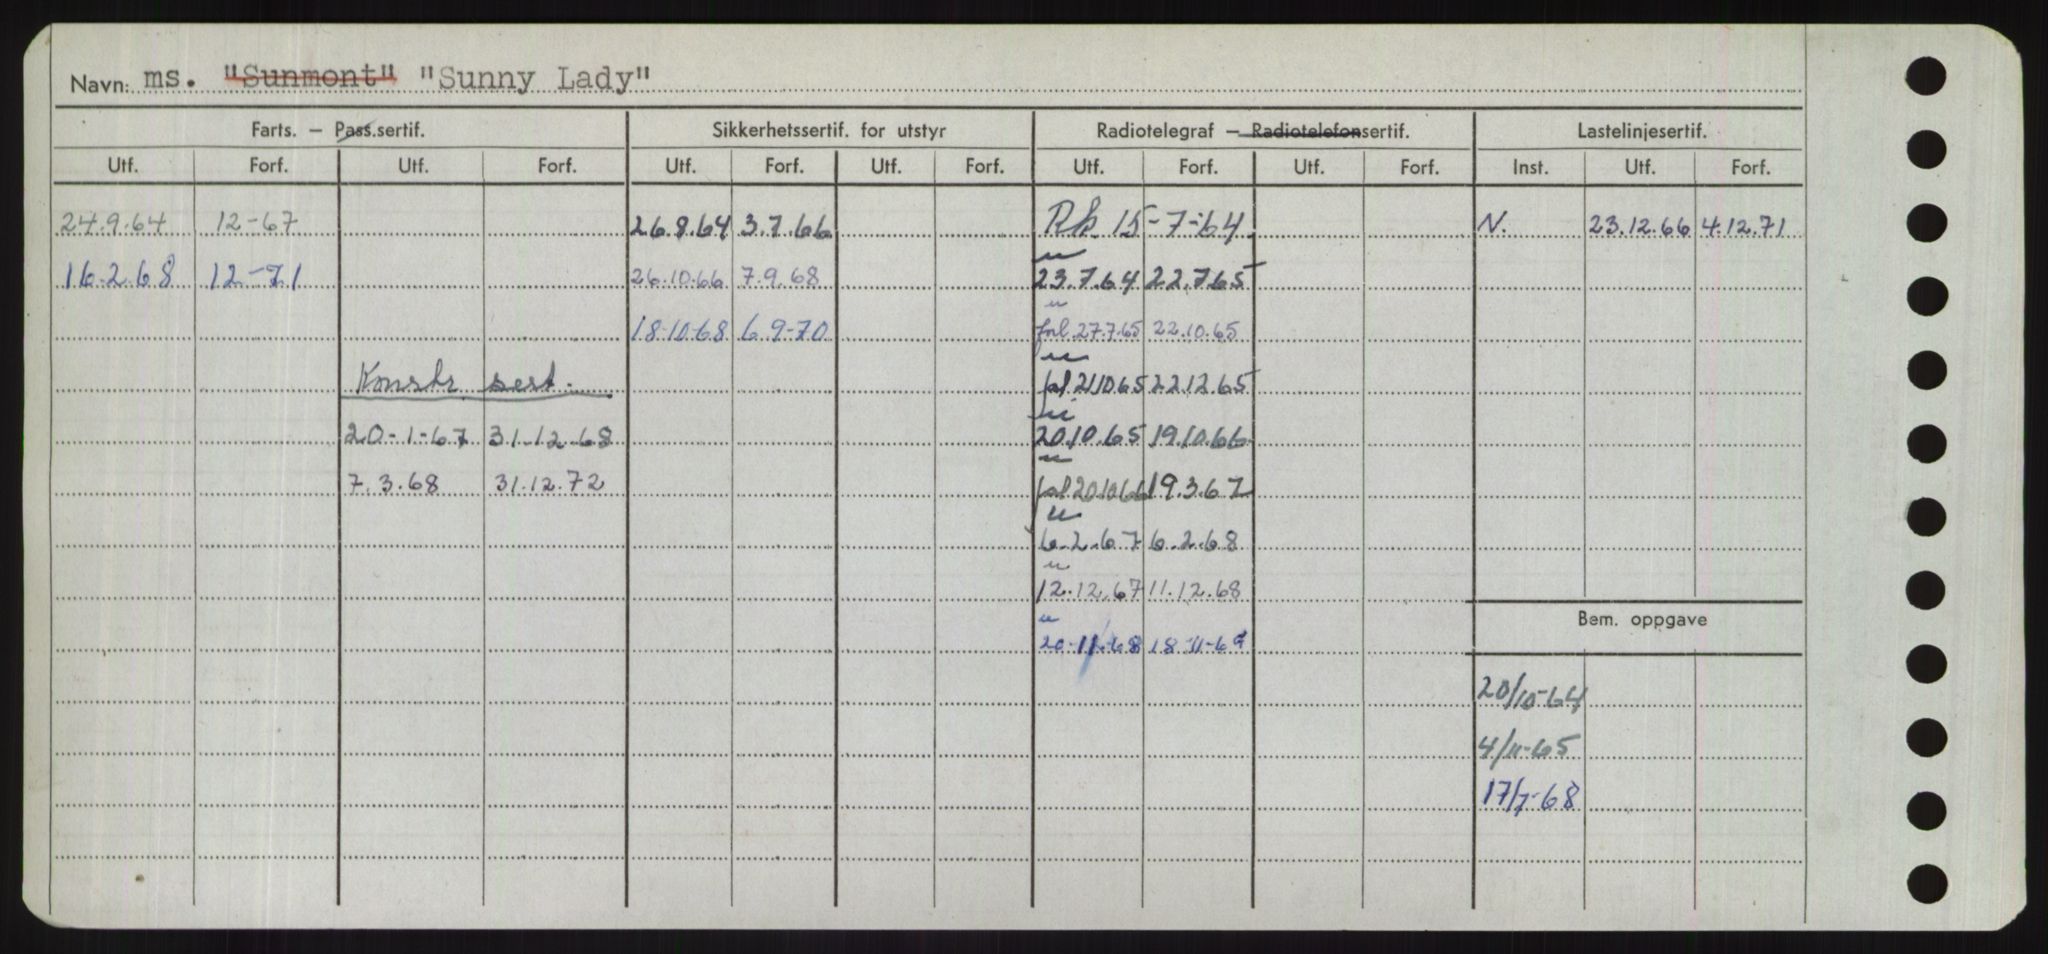 Navn: ms. "Sunmont" "Sunny Lady"
Farts. — Pass.sertif. Sikkerhetssertif. for utstyr Radiotelegraf — Radiotelefonsertif. Lastelinjesertif.
Utf. Forf. Utf. Forf. Utf. Forf. Utf. Forf. Utf. Forf. Utf. Forf. Inst. Utf. Forf.
24.9.64 12-67 26.8.64 3.7.66 Rk. 15-7-64 N. 23.12.66 4.12.71
16.2.68 12-71 26.10.66 7.9.68 23.7.64 22.7.65
18-10-68 6.9-70 forl. 27.7.65 22.10.65
Konstr sert. 21.10.65 22.12.65
20-1-67 31.12.68 20.10.65 19.10.66
7.3.68 31.12.72 20.10.66 19.3.67
6.2.67 6.2.68
12.12.67 11.12.68
20-11-68 18-11-69
Bem. oppgave
20/10-64
4/11-65
17/7-68